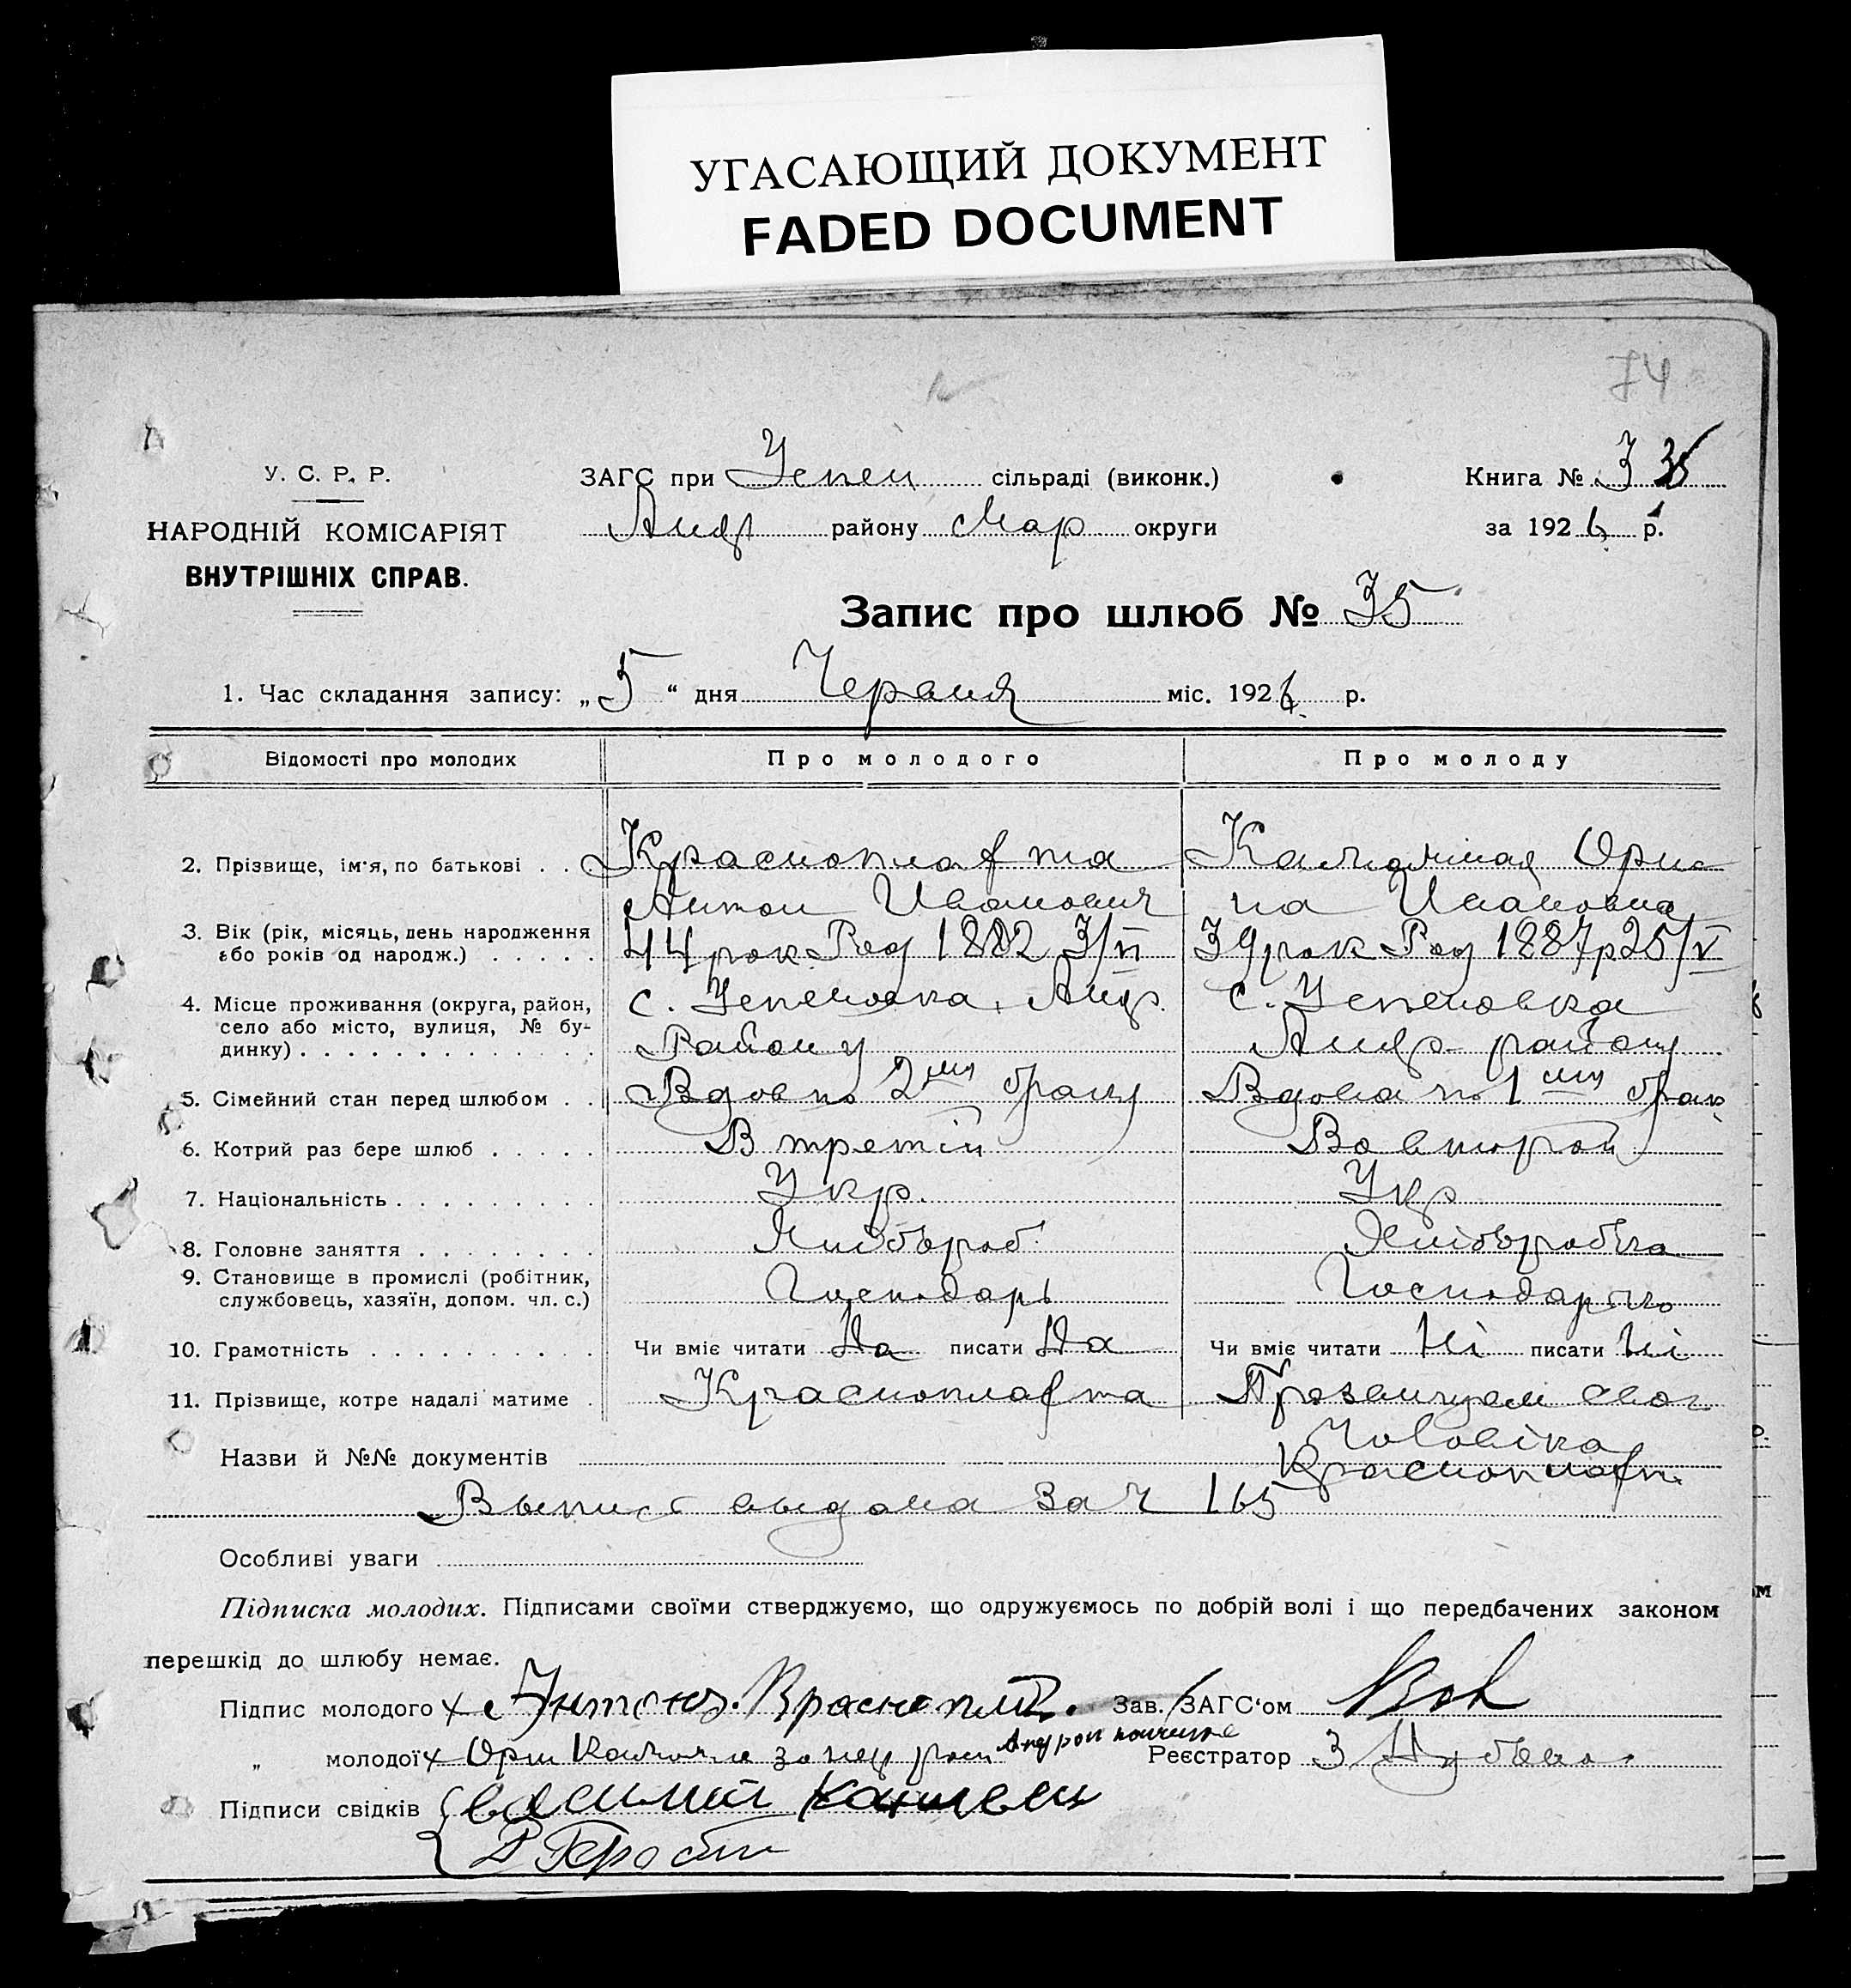 УГАСАЮЩИЙ ДОКУМЕНТ
FADED DOCUMENT
74
У. С. Р. Р.
НАРОДНІЙ КОМІСАРІЯТ
ВНУТРІШНІХ СПРАВ.
ЗАГС при Успен сільраді (виконк.)
Андр району Мар округи
Книга № 3
за 1926 р.
Запис про шлюб № 35
1. Час складання запису: „5“ дня Червня міс. 1926 р.
Відомості про молодих Про молодого Про молоду
2. Прізвище, ім'я, по батькові . . Красноплахта
Антон Иванович
Орис
на Ивановна
3. Вік (рік, місяць, день народження
або років од народж.) . . . . . 44 рок. Род 1882 3/VI 39 рок Род 1887р 25/V
4. Місце проживання (округа, район,
село або місто, вулиця, № бу-
динку) . . . . . . . . . . . . . с. Успеновка, Андр.
Району
с. Успеновка
Андр. району
5. Сімейний стан перед шлюбом . . Вдов по 2му браку Вдова по 1му брак
6. Котрий раз бере шлюб . . . . . В третій Во второй
7. Національність . . . . . . . . . Укр. Укр
8. Головне заняття . . . . . . . . Хлібороб. Хлібороб
9. Становище в промислі (робітник,
службовець, хазяїн, допом. чл. с.) Господарь
10. Грамотність . . . . . . . . . . Чи вміє читати Да писати Да Чи вміє читати Ні писати Ні
11. Прізвище, котре надалі матиме . Красноплахта свог
Чоловіка
Красноплахт
Назви й №№ документів
Выпис выдана за Ч 165
Особливі уваги
Підписка молодих. Підписами своїми стверджуємо, що одружуємось по добрій волі і що передбачених законом
перешкід до шлюбу немає.
Підпис молодого х Антон Зав. ЗАГС'ом
„ молодої х Орин за неу рос Реєстратор
Підписи свідків